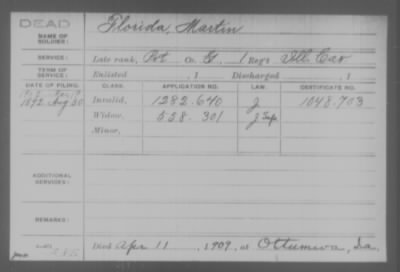 DEAD
NAME OF SOLDIER: Florida, Martin
SERVICE: Late rank, Pvt Co. G, 1 Reg't Ill Cav
TERM OF SERVICE: Enlisted , 1 Discharged , 1
DATE OF FILING. CLASS. APPLICATION NO. LAW. CERTIFICATE NO.
Invalid, 1282.640 J 1048.703
1892 Aug 30 Widow, 528.301 J
Minor,
ADDITIONAL SERVICES:
REMARKS:
Died Apr 11, 1909, at Ottumwa, Ia.